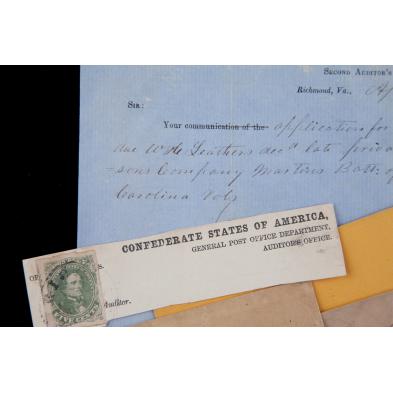 SECOND AUDITOR'S
Richmond, Va., Ap
SIR:
Your communication of the application for
due Wm Leathers decd late priva
Company Martins Batt: of
Carolina Vols
CONFEDERATE STATES OF AMERICA,
GENERAL POST OFFICE DEPARTMENT,
AUDITOR'S OFFICE.
OF
S.
Auditor.
FIVE CENTS